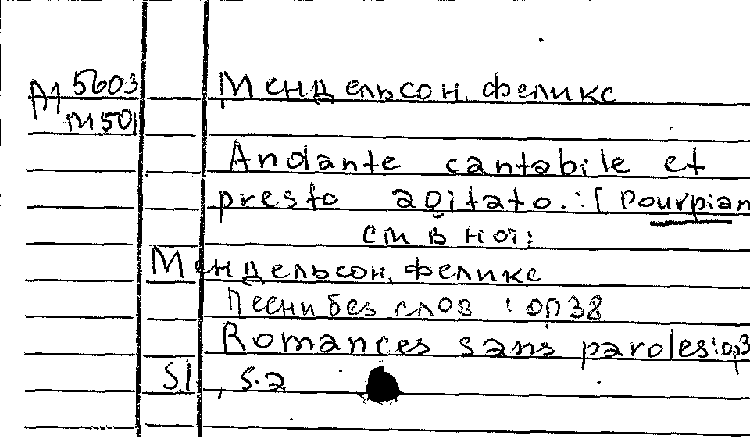 М 5603 Мендельсон, Феликс
М 501
Andante cantabile et
presto agitato. : [ Pourpian
см в нот:
Мендельсон, Феликс
Песни без слов : оп 38
Romances sans paroles: op3
Sl , s.a